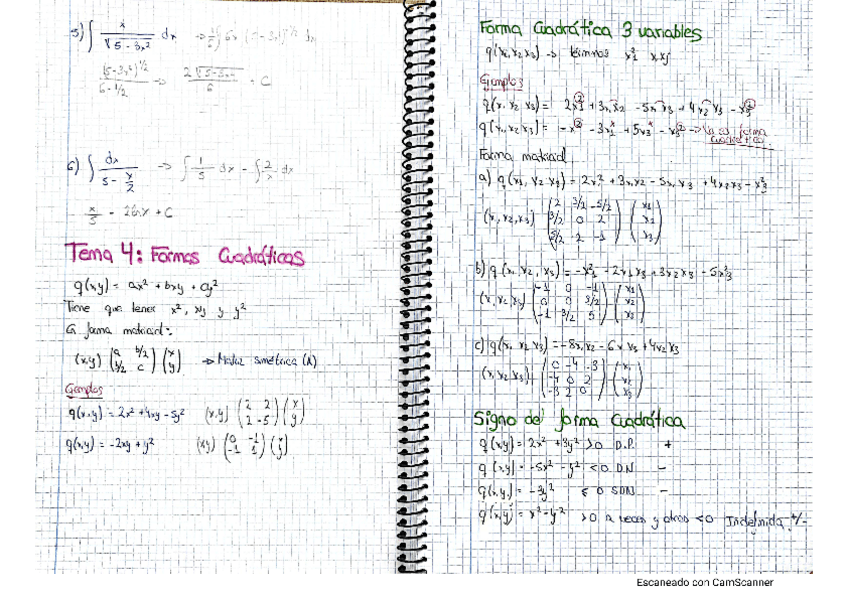 5) ∫ x / √(5 - 3x²) dx → 1/6 ∫ 6x (5 - 3x²)^(-1/2) dx
(5-3x²)^(1/2) / (6·1/2) → 2√(5-3x²) / 6 + C
6) ∫ dx / (5 - x/2) → ∫ 1/5 dx - ∫ 2/x dx
x/5 - 2lnx + C
Tema 4: Formas Cuadráticas
q(x,y) = ax² + bxy + cy²
Tiene que tener x², xy y y²
forma matricial:
(x,y) (a b/2; b/2 c) (x; y) → Matriz simétrica (A)
Ejemplos
q(x,y) = 2x² + 4xy - 5y² (x,y) (2 2; 2 -5) (x; y)
q(x,y) = -2xy + y² (x,y) (0 -1; -1 1) (x; y)
Forma Cuadrática 3 variables
q(x₁,x₂,x₃) → términos x₁² x₁xj
Ejemplos
q(x₁ x₂ x₃) = 2x₁² + 3x₁x₂ - 5x₁x₃ + 4x₂x₃ - x₃²
q(x₁,x₂,x₃) = -x² - 3x₁ + 5x₃ - x₃² → No es forma cuadrática
Forma matricial
a) q(x₁, x₂ x₃) = 2x₁² + 3x₁x₂ - 5x₁x₃ + 4x₂x₃ - x₃²
(x₁,x₂,x₃) (2 3/2 -5/2; 3/2 0 2; 5/2 2 -1) (x₁; x₂; x₃)
b) q(x₁, x₂, x₃) = -x₁² - 2x₁x₃ + 3x₂x₃ - 5x₃²
(x₁,x₂,x₃) (-1 0 -1; 0 0 3/2; -1 3/2 5) (x₁; x₂; x₃)
c) q(x₁, x₂ x₃) = -8x₁x₂ - 6x₁x₃ + 4x₂x₃
(x₁,x₂,x₃) (0 -4 -3; -4 0 2; -3 2 0) (x₁; x₂; x₃)
Signo de forma Cuadrática
q(x,y) = 2x² + 3y² > 0 D.P. +
q(x,y) = -5x² - y² < 0 D.N -
q(x,y) = -3y² ≤ 0 S.D.N -
q(x,y) = x² - y² > 0 a veces y otras < 0 Indefinida +/-
Escaneado con CamScanner